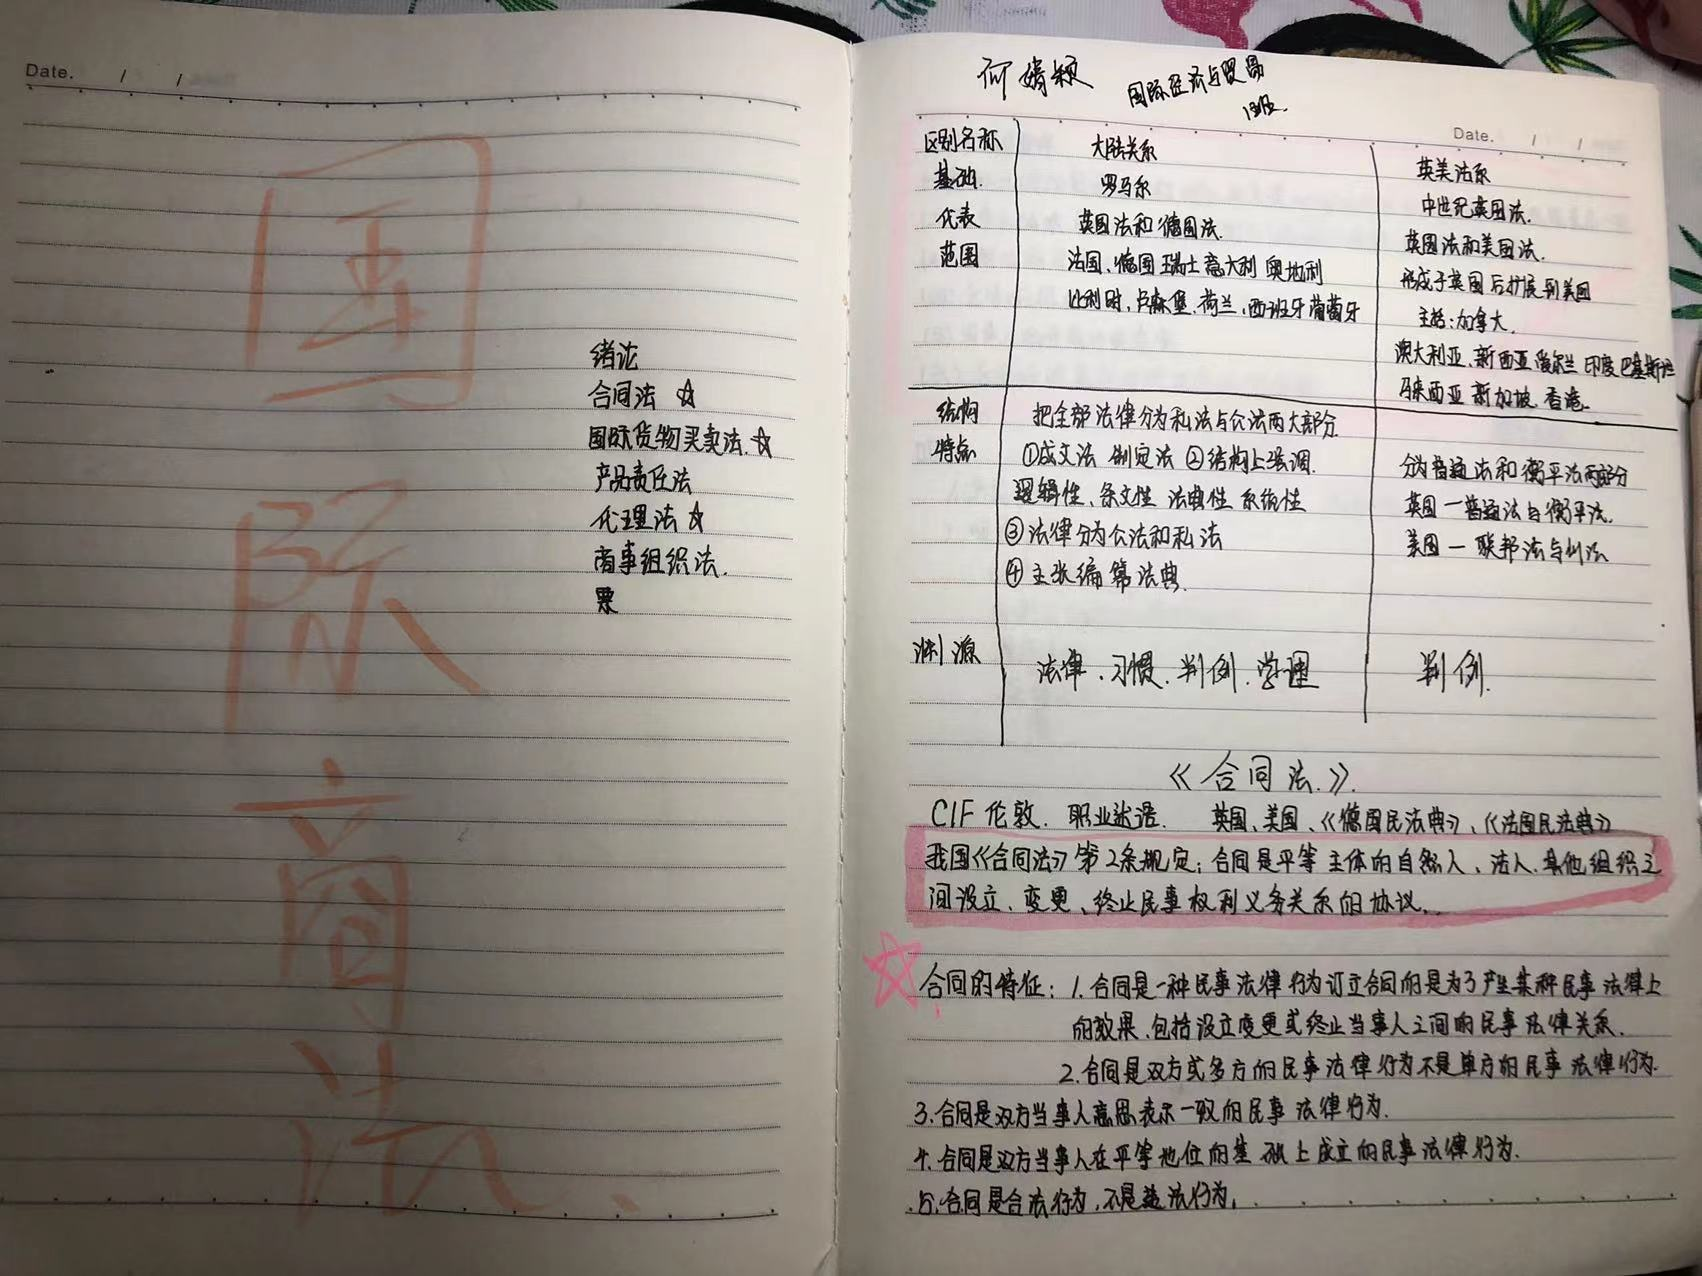 Date. / /
国
际
商
法.
绪论
合同法 ☆
国际货物买卖法.☆
产品责任法
代理法☆
商事组织法.
票
何婧颖 国际经济与贸易
1班.
Date. / /
区别名称 大陆关系 英美法系
基础. 罗马系 中世纪英国法.
代表 英国法和德国法. 英国法和美国法.
范围 法国、德国 瑞士 意大利 奥地利 形成于英国后扩展到美国
比利时、卢森堡、荷兰、西班牙 葡萄牙 主括:加拿大.
澳大利亚、新西亚 爱尔兰 印度 巴基斯坦
马来西亚 新加坡 香港.
结构 把全部法律分为私法与公法两大部分. 分为普通法和衡平法两部分
特点 ①成文法 制定法 ②结构上强调. 英国—普通法与衡平法.
逻辑性、条文性 法典性 系统性 美国—联邦法与州法
③法律分为公法和私法
④主张编纂法典.
渊源 法律、习惯、判例、学理 判例.
《合同法.》
CIF 伦敦. 职业迷语. 英国、美国、《德国民法典》、《法国民法典》
我国《合同法》第2条规定:合同是平等主体的自然人、法人、其他组织之
间设立、变更、终止民事权利义务关系的协议.
☆合同的特征:1.合同是一种民事法律行为订立合同的是为了产生某种民事法律上
的效果、包括设立变更或终止当事人之间的民事法律关系.
2.合同是双方或多方的民事法律行为不是单方的民事法律行为.
3.合同是双方当事人意思表示一致的民事法律行为.
4.合同是双方当事人在平等地位的基础上成立的民事法律行为.
5.合同是合法行为,不是违法行为.